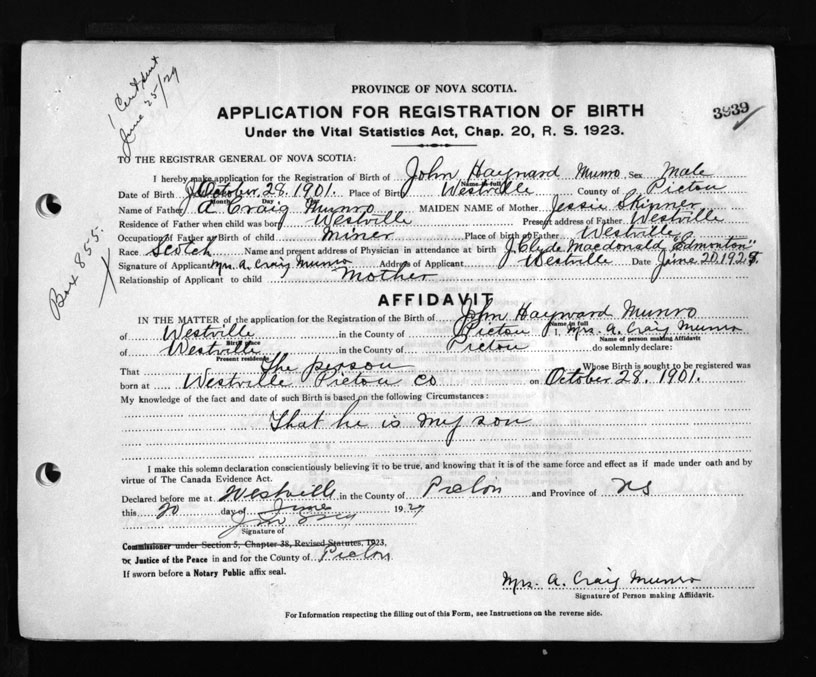 1 Cert sent
June 25/29
PROVINCE OF NOVA SCOTIA.
APPLICATION FOR REGISTRATION OF BIRTH
3939
Under the Vital Statistics Act, Chap. 20, R. S. 1923.
TO THE REGISTRAR GENERAL OF NOVA SCOTIA:
I hereby make application for the Registration of Birth of John Hayward Munro Sex Male
Name in full
Date of Birth October 28. 1901. Place of Birth Westville County of Pictou
Month Day
Name of Father A Craig Munro MAIDEN NAME of Mother Jessie Skinner
Residence of Father when child was born Westville Present address of Father Westville
Occupation of Father at Birth of child Miner Place of birth of Father Westville
Race Scotch Name and present address of Physician in attendance at birth J. Clyde Macdonald Edmonton
Signature of Applicant Mrs. A. Craig Munro Address of Applicant Westville Date June 20, 1929.
Relationship of Applicant to child Mother
Box 855.
AFFIDAVIT
IN THE MATTER of the application for Registration of the Birth of John Hayward Munro
Name in full
of Westville in the County of Pictou I, Mrs. A. Craig Munro
Birth place Name of person making Affidavit
of Westville in the County of Pictou do solemnly declare:
Present residence
That The person Whose Birth is sought to be registered was
born at Westville Pictou Co on October 28. 1901.
My knowledge of the fact and date of such Birth is based on the following Circumstances:
That he is my son
I make this solemn declaration conscientiously believing it to be true, and knowing that it is of the same force and effect as if made under oath and by
virtue of The Canada Evidence Act.
Declared before me at Westville in the County of Pictou and Province of NS
this 20 day of June 1929
Signature of
Commissioner under Section 5, Chapter 38, Revised Statutes, 1923,
or Justice of the Peace in and for the County of Pictou
If sworn before a Notary Public affix seal.
Mrs. A. Craig Munro
Signature of Person making Affidavit.
For Information respecting the filling out of this Form, see Instructions on the reverse side.